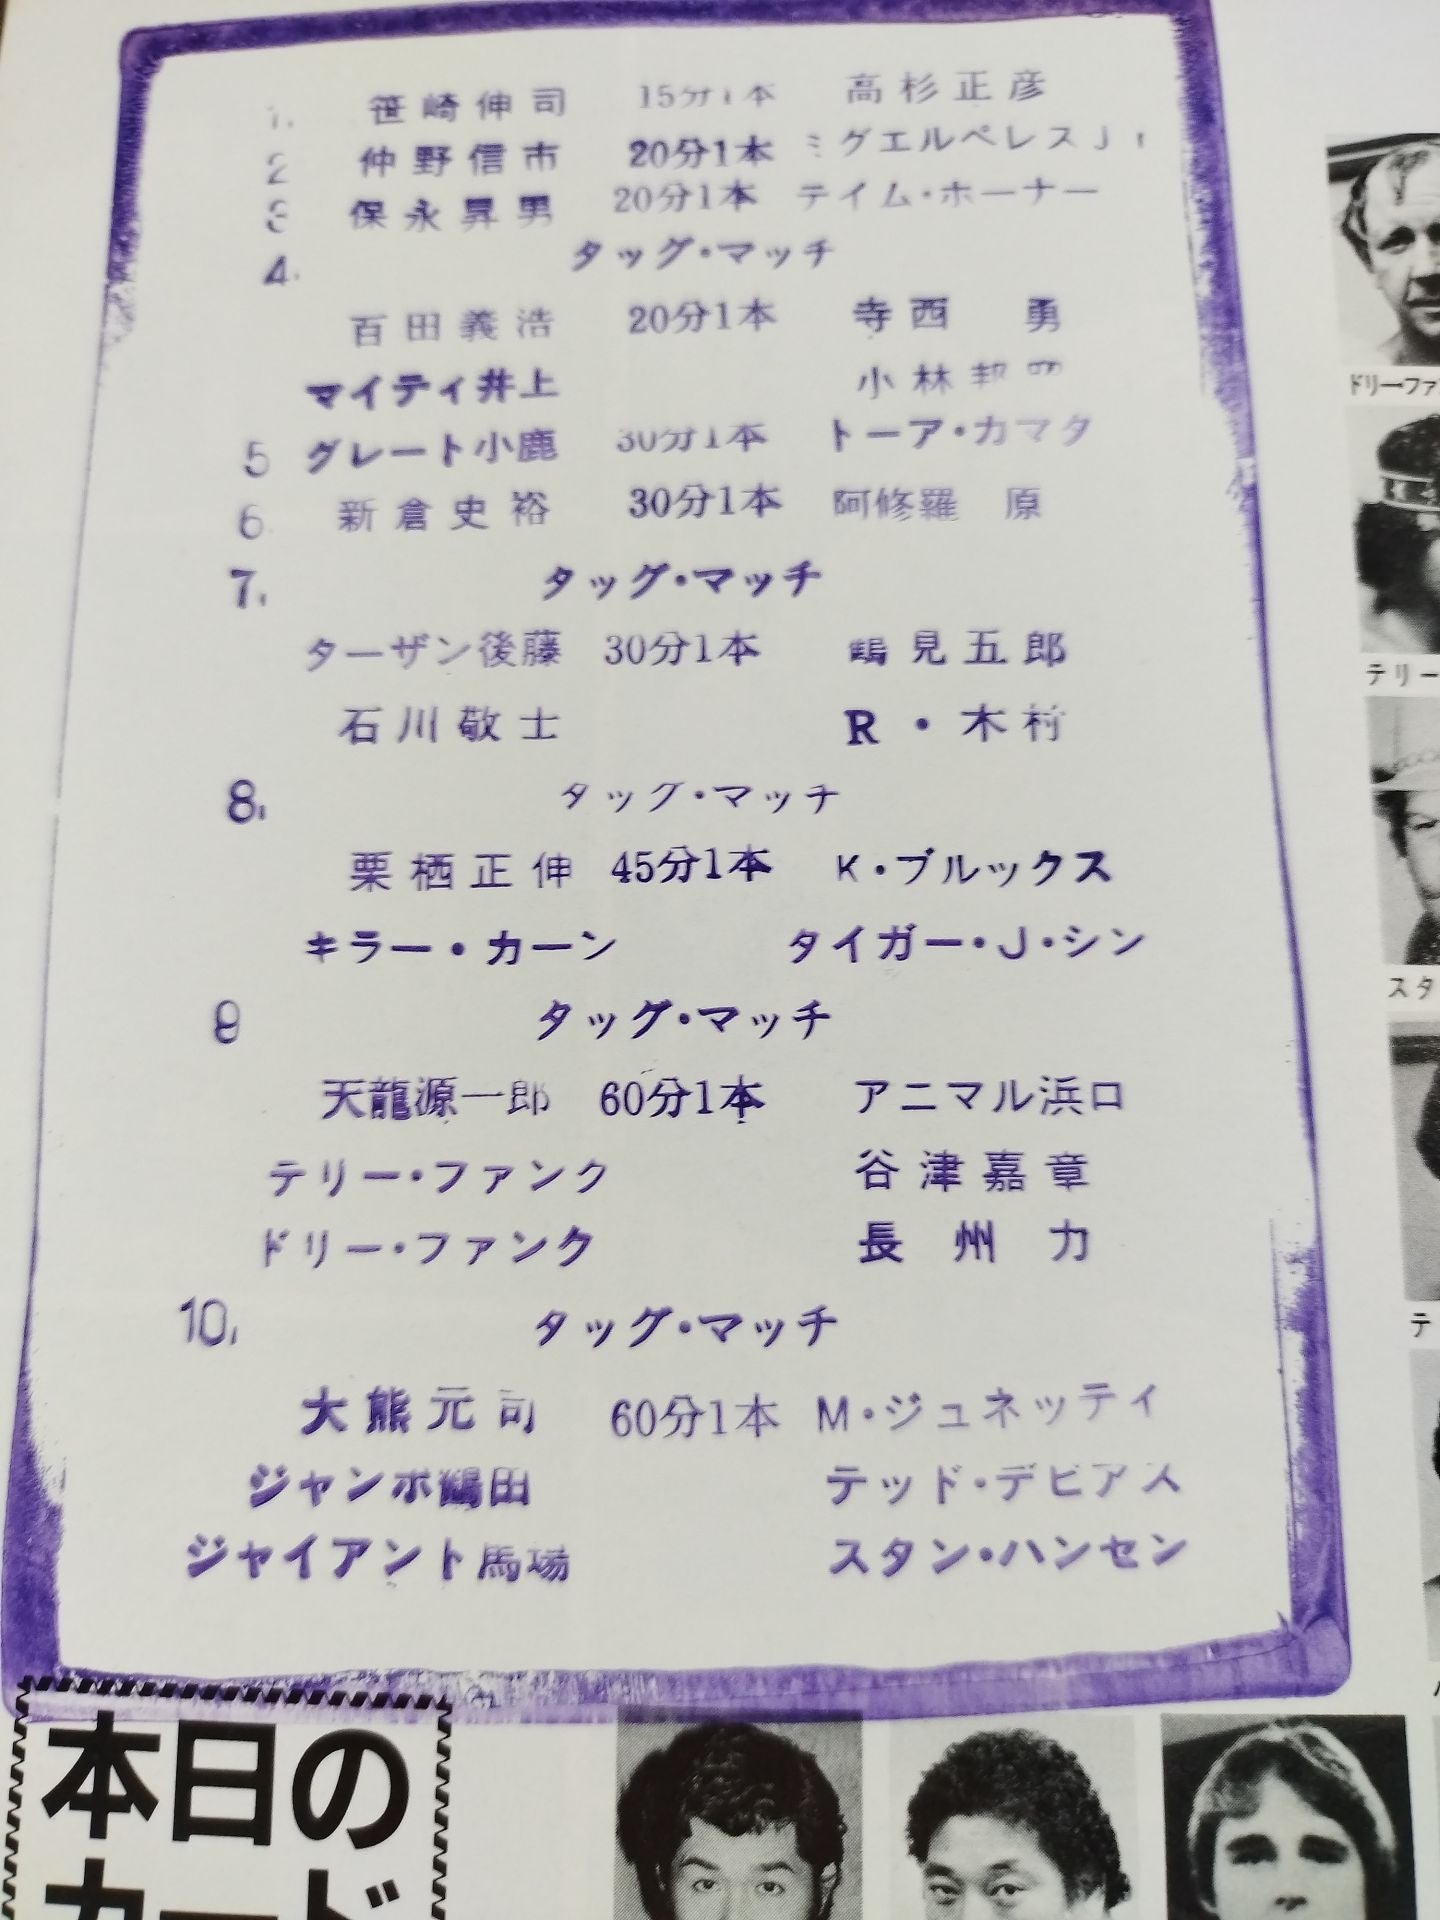 1. 笹崎伸司 15分1本 高杉正彦
2 仲野信市 20分1本 ミグエルペレスJr
3 保永昇男 20分1本 テイム・ホーナー
4. タッグ・マッチ
百田義浩 20分1本 寺西 勇
マイティ井上 小林邦
5 グレート小鹿 30分1本 トーア・カマタ
6. 新倉史裕 30分1本 阿修羅 原
7. タッグ・マッチ
ターザン後藤 30分1本 鶴見五郎
石川敬士 R・木村
8. タッグ・マッチ
栗栖正伸 45分1本 K・ブルックス
キラー・カーン タイガー・J・シン
9 タッグ・マッチ
天龍源一郎 60分1本 アニマル浜口
テリー・ファンク 谷津嘉章
ドリー・ファンク 長州力
10. タッグ・マッチ
大熊元司 60分1本 M・ジュネッティ
ジャンボ鶴田 テッド・デビアス
ジャイアント馬場 スタン・ハンセン
本日の
カード
ドリー・ファ
テリー
スタ
テ